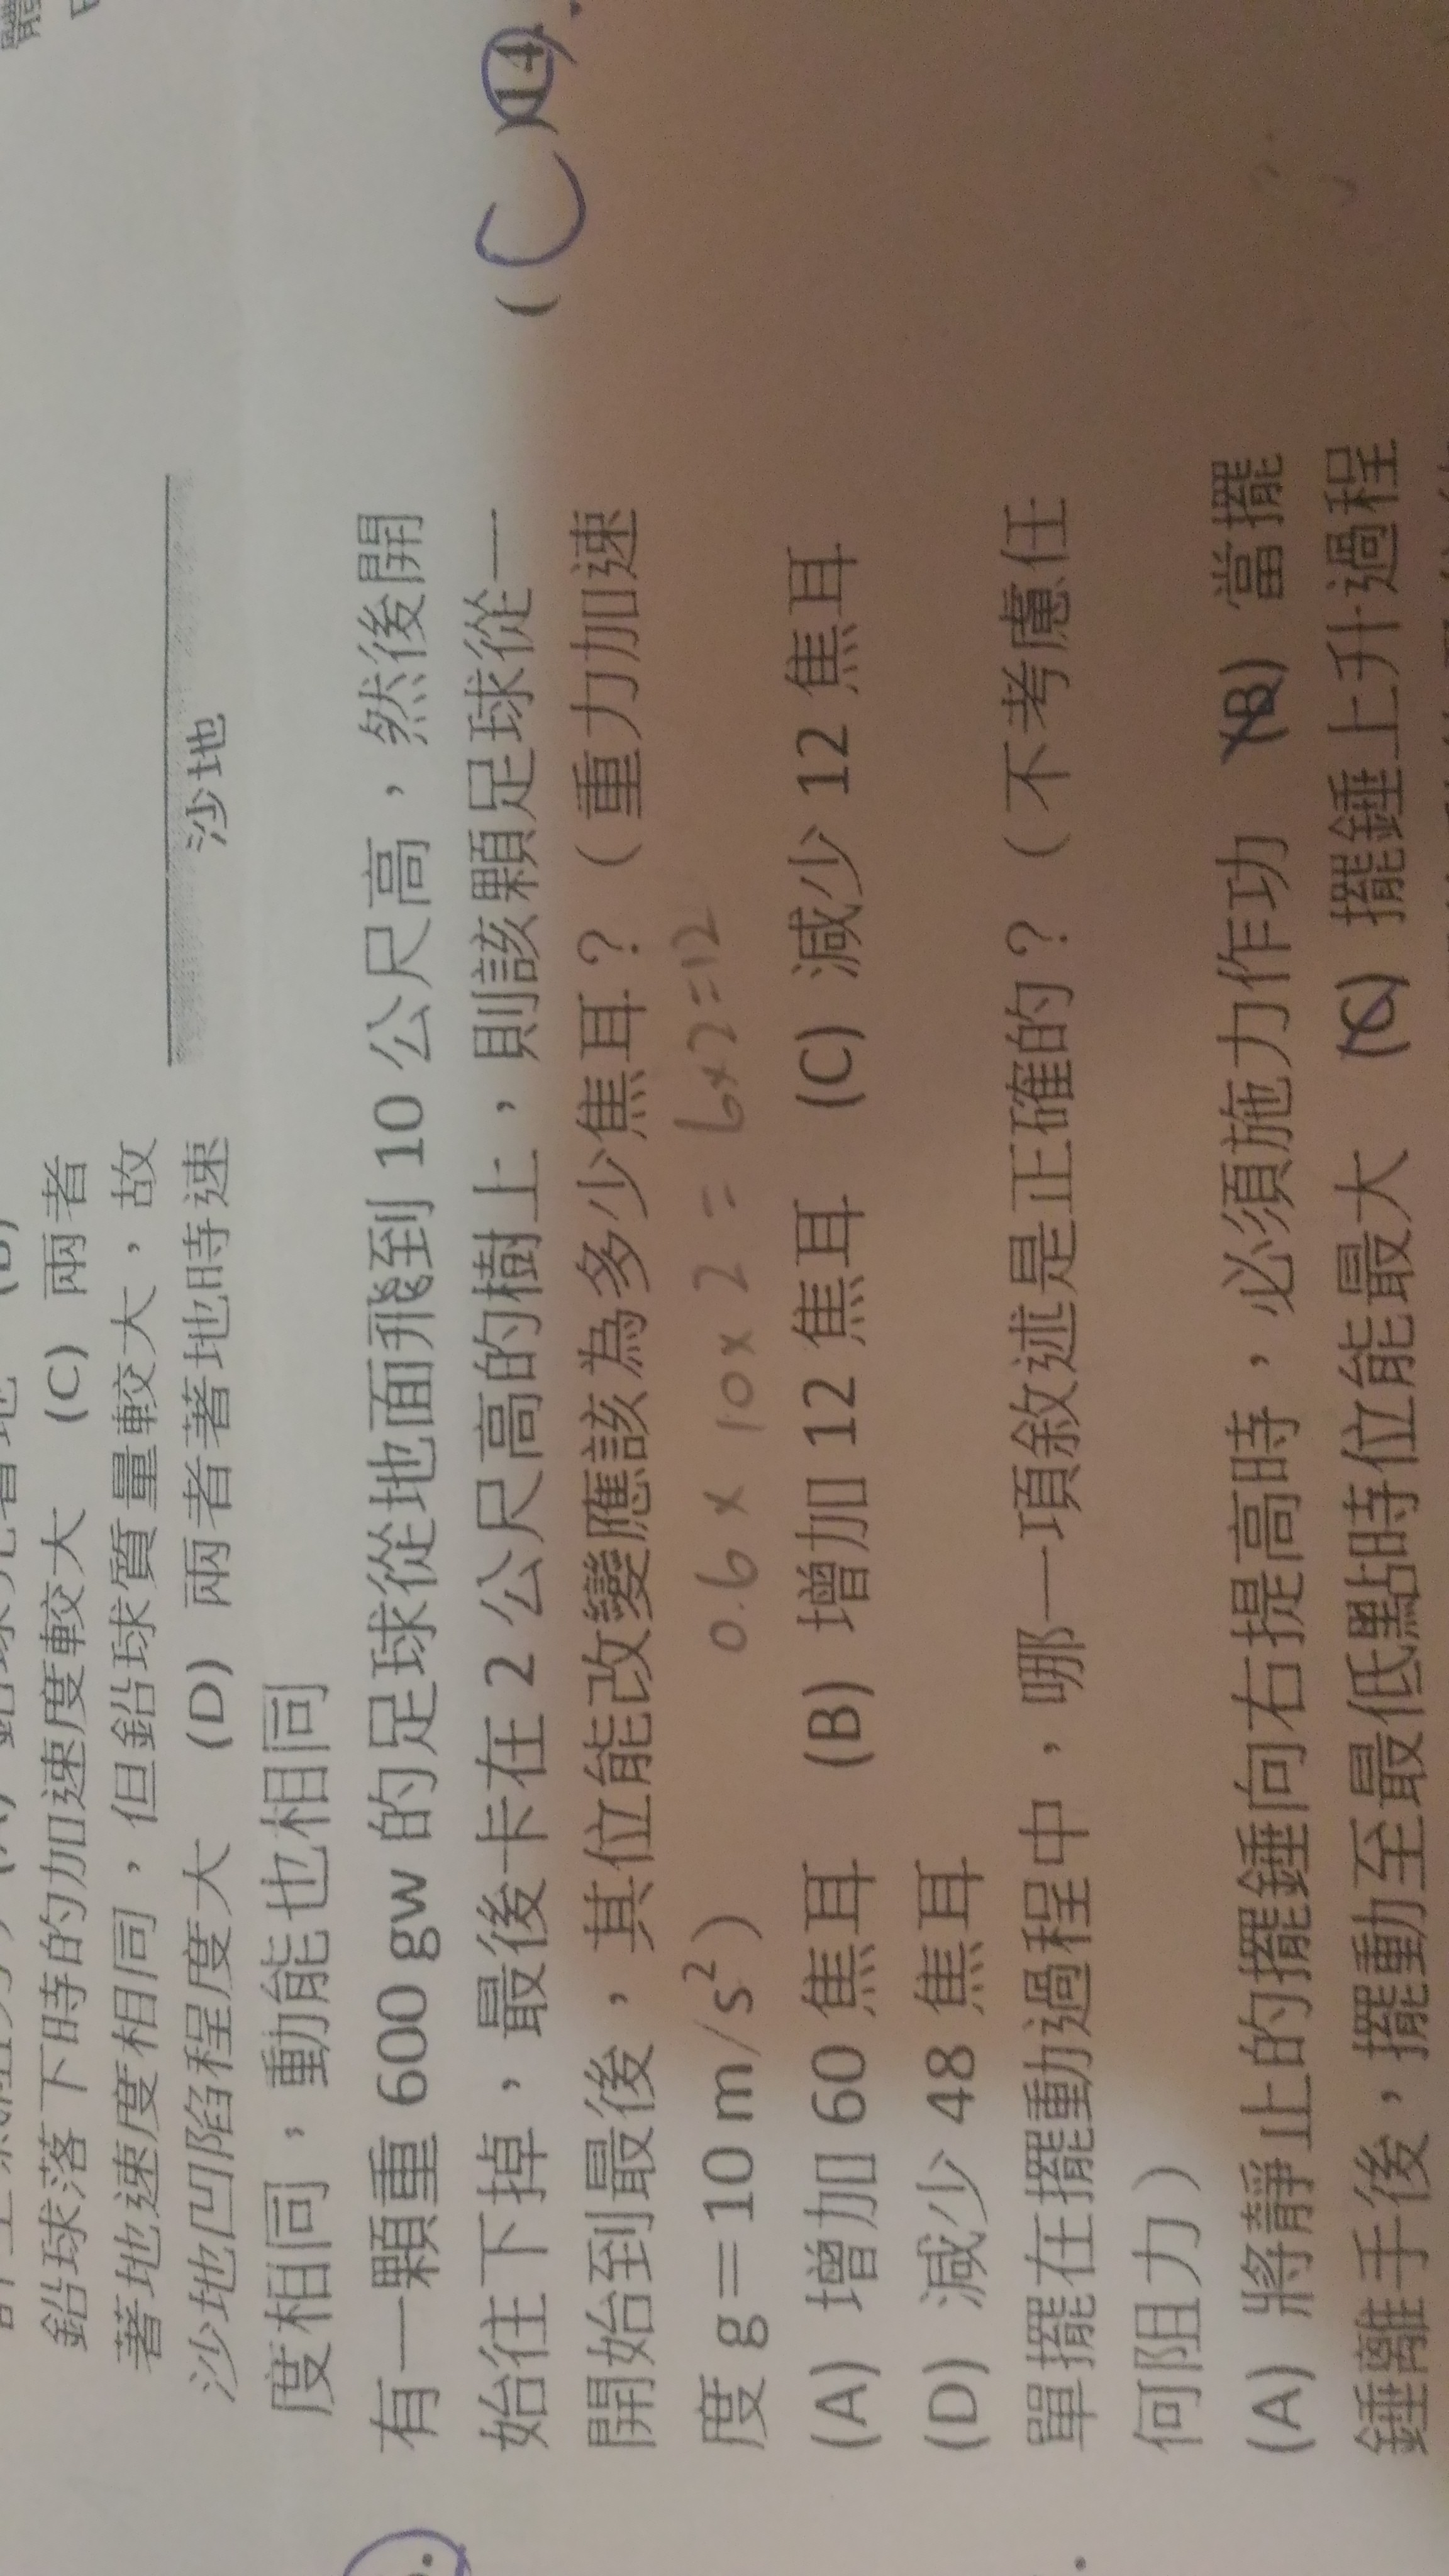 鉛球落下時的加速度較大 (C) 兩者
著地速度相同，但鉛球質量較大，故
沙地凹陷程度大 (D) 兩者著地時速
度相同，動能也相同
沙地
有一顆重 600 gw 的足球從地面飛到 10 公尺高，然後開
始往下掉，最後卡在 2 公尺高的樹上，則該顆足球從一
開始到最後，其位能改變應該為多少焦耳？（重力加速
度 g＝10 m/s²）
0.6 × 10 × 2 = 6×2=12
(A) 增加 60 焦耳 (B) 增加 12 焦耳 (C) 減少 12 焦耳
(D) 減少 48 焦耳
單擺在擺動過程中，哪一項敘述是正確的？（不考慮任
何阻力）
(A) 將靜止的擺錘向右提高時，必須施力作功 (B) 當擺
錘離手後，擺動至最低點時位能最大 (C) 擺錘上升過程
( C )14.